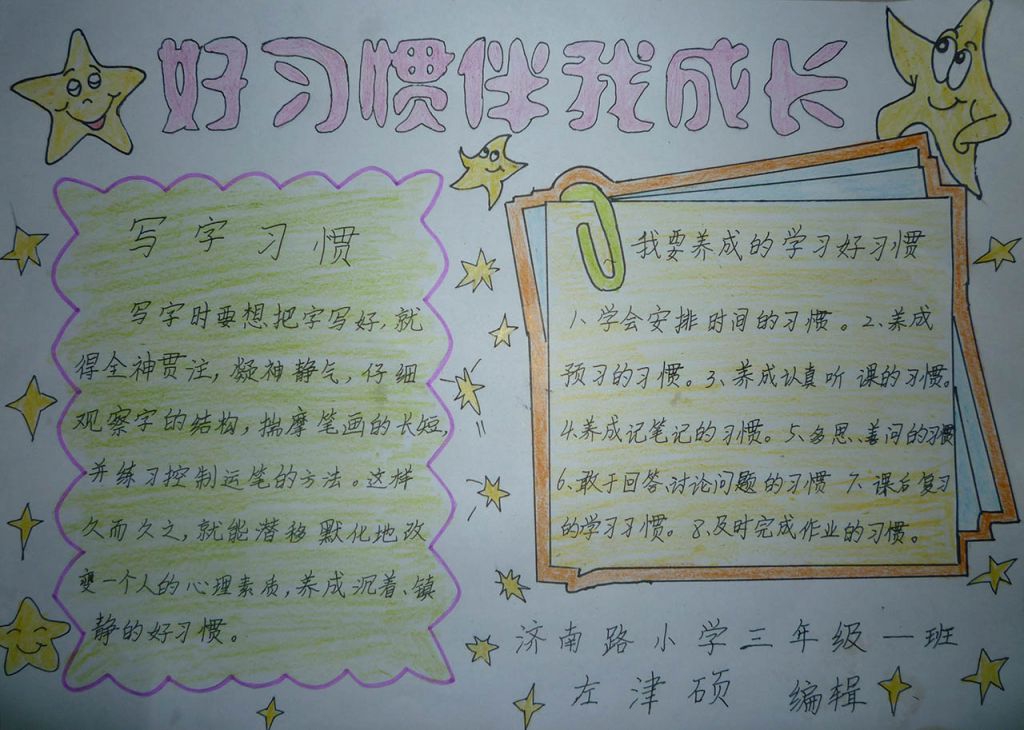 好习惯伴我成长
写字习惯
写字时要想把字写好,就
得全神贯注,凝神静气,仔细
观察字的结构,揣摩笔画的长短,
并练习控制运笔的方法。这样
久而久之,就能潜移默化地改
变一个人的心理素质,养成沉着、镇
静的好习惯。
我要养成的学习好习惯
1、学会安排时间的习惯。2、养成
预习的习惯。3、养成认真听课的习惯。
4、养成记笔记的习惯。5、多思、善问的习惯
6、敢于回答、讨论问题的习惯 7、课后复习
的学习习惯。8、及时完成作业的习惯。
济南路小学三年级一班
左津硕 编辑